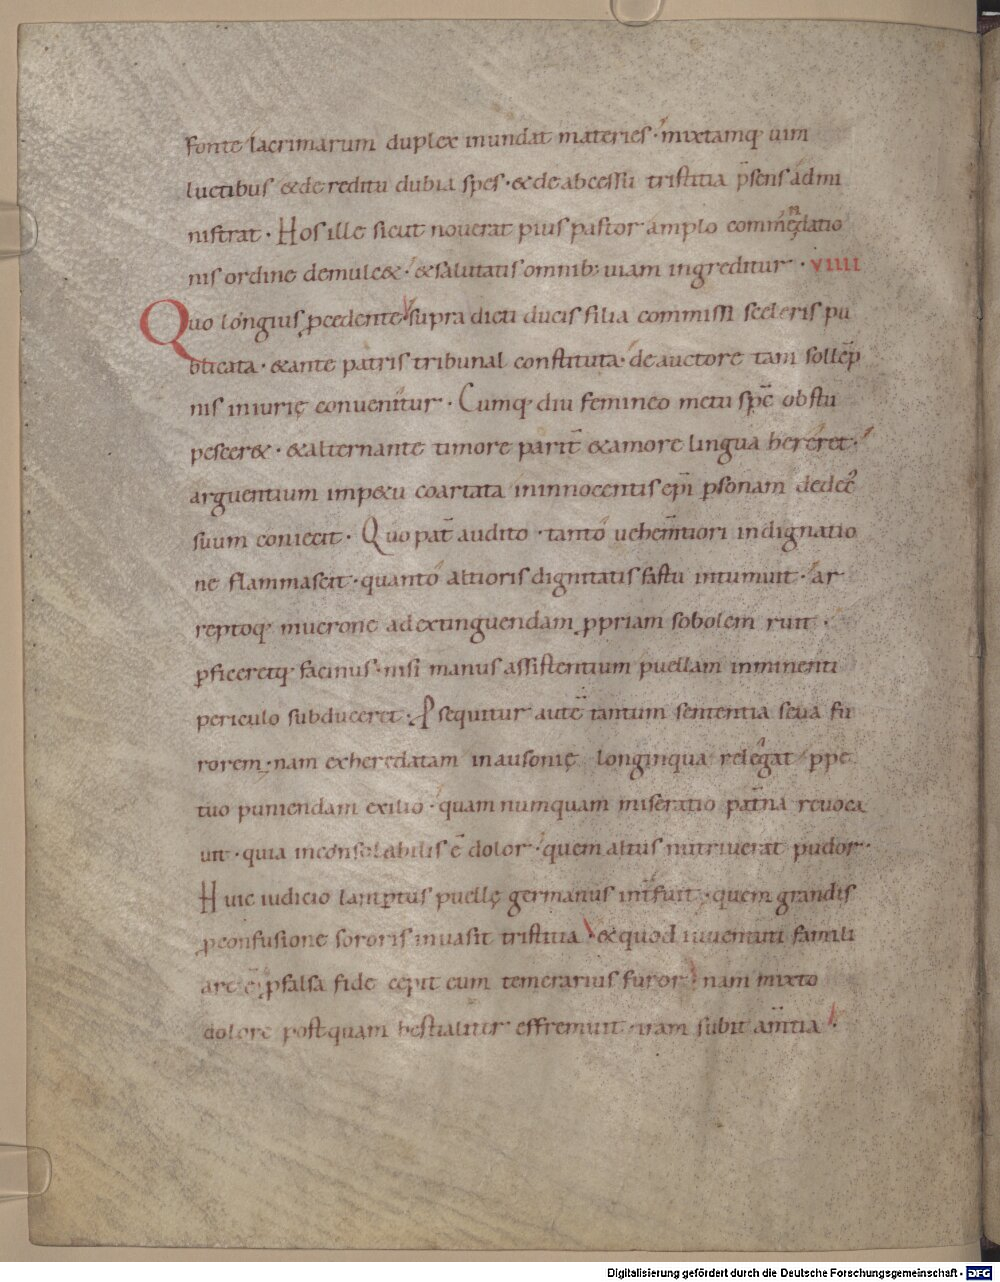 fonte lacrimarum duplex inundat materies · mixtamq; uim
luctibus & de reditu dubia spes · & de abcessu tristitia p̄sens admi
nistrat · Hos ille sicut nouerat pius pastor amplo commendatio
nis ordine demulc& · & salutatis omnib; uiam ingreditur · VIIII
Quo longius p̱cedente supra dicti ducis filia commissi sceleris pu
blicata · & ante patris tribunal constituta · de auctore tam sollēp
nis iniurię conuenitur · Cumq; diu femineo metu spē obstu
pescer& · & alternante timore parit̄ & amore lingua hereret ·
arguentium imp&u coartata in innocentis ep̄i psonam dedec᷒
suum coniecit · Quo pat̄ audito · tanto uehem̄tiori indignatio
ne flammascit · quanto altioris dignitatis fastu intumuit · ar
reptoq; mucrone ad extinguendam p̱priam sobolem ruit ·
pficeretq; facinus · nisi manus assistentium puellam inminenti
periculo subduceret · Psequitur autē tantum sententia seua fu
rorem · nam exheredatam in ausonię longinqua relegat ppe
tuo puniendam exilio · quam numquam miseratio pat̄na reuoca
uit · quia inconsolabilis ē dolor · quem altus nutriuerat pudor ·
Huic iudicio lamptus puellę germanus int̄fuit · quem grandis
p̱confusione sororis inuasit tristitia · & quod iuuentuti famili
are ē · p̱ falsa fide cepit eum temerarius furor · nam mixto
dolore postquam bestialiter effremuit · iram subit am̄tia ·
Digitalisierung gefördert durch die Deutsche Forschungsgemeinschaft - DFG